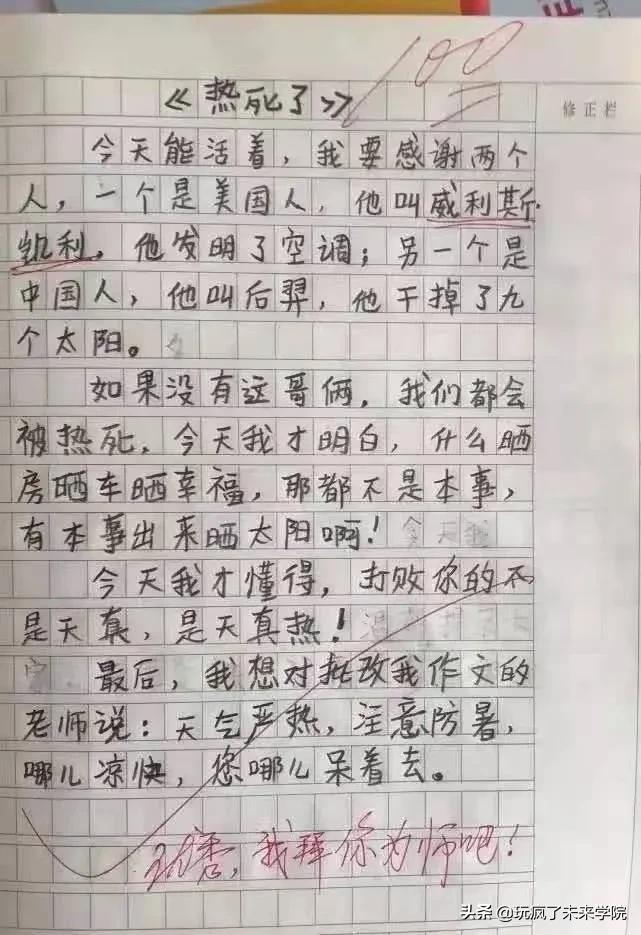 100
《热死了》
修正栏
今天能活着，我要感谢两个
人，一个是美国人，他叫威利斯·
凯利，他发明了空调；另一个是
中国人，他叫后羿，他干掉了九
个太阳。
如果没有这哥俩，我们都会
被热死，今天我才明白，什么晒
房晒车晒幸福，那都不是本事，
有本事出来晒太阳啊！
今天我才懂得，打败你的不
是天真，是天真热！
最后，我想对批改我作文的
老师说：天气严热，注意防暑，
哪儿凉快，您哪儿呆着去。
我拜你为师吧！
头条@玩疯了未来学院